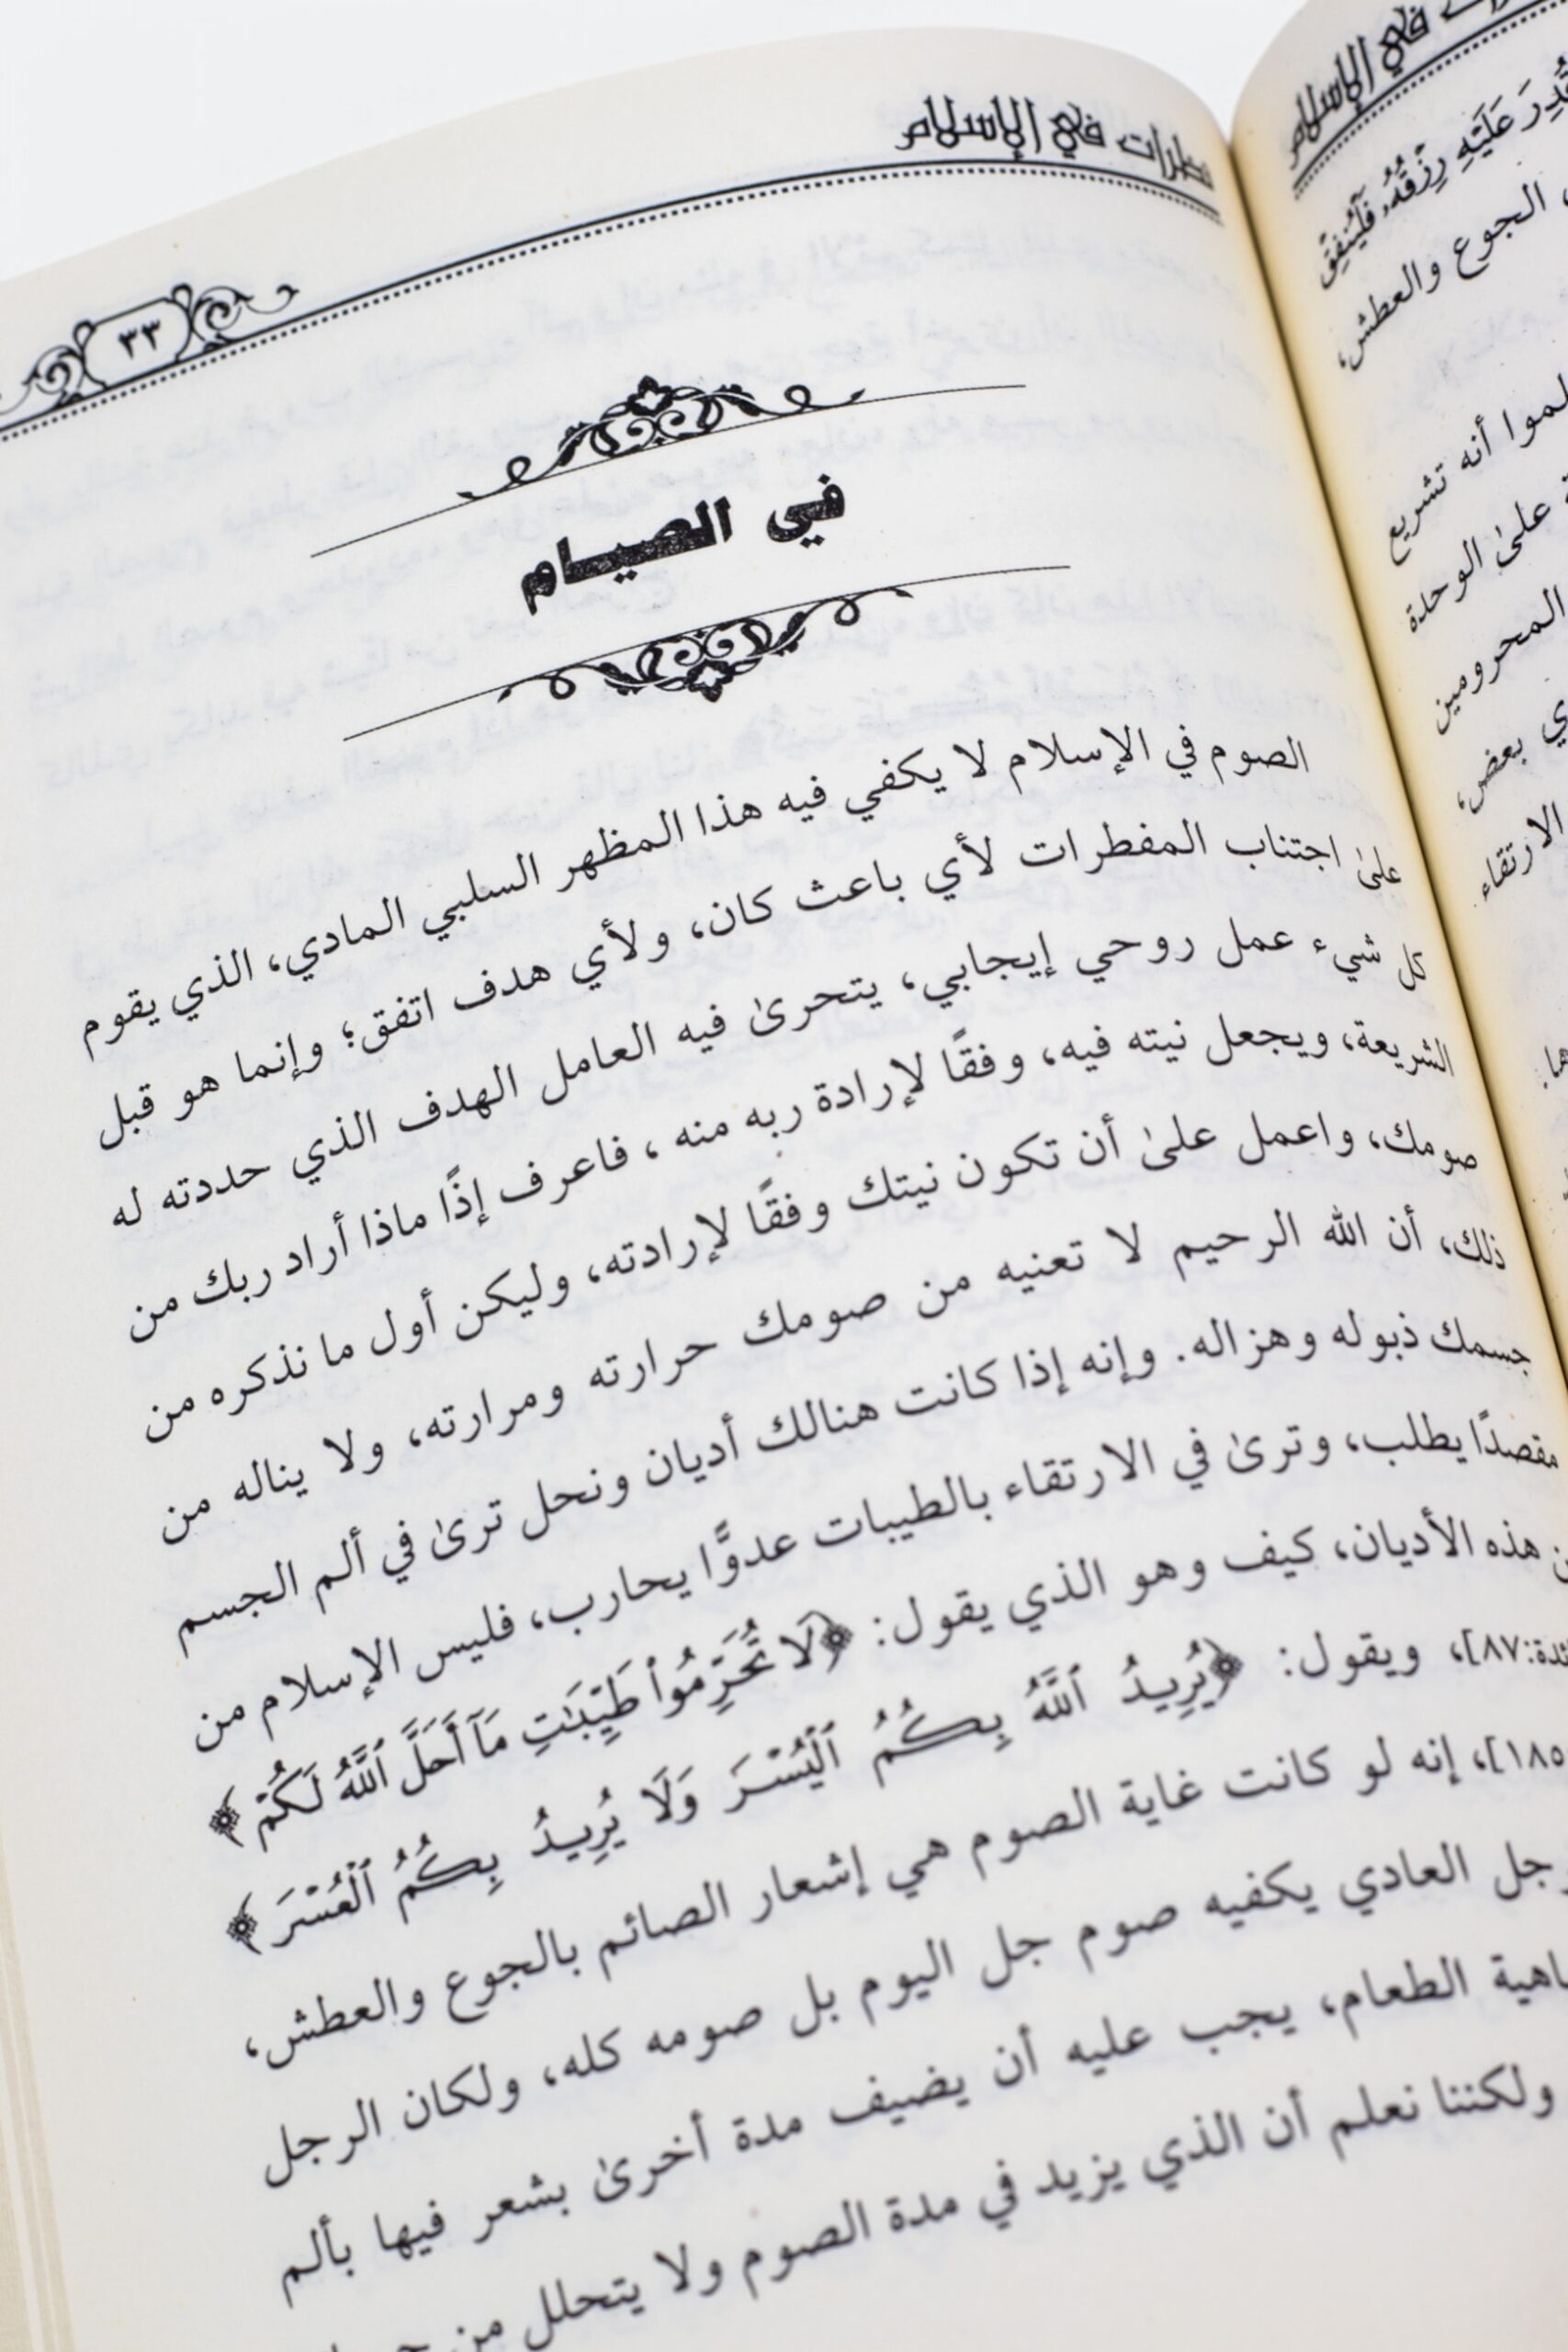 نظرات في الإسلام
٣٣
في الصيام
الصوم في الإسلام لا يكفي فيه هذا المظهر السلبي المادي، الذي يقوم
علىٰ اجتناب المفطرات لأي باعث كان، ولأي هدف اتفق؛ وإنما هو قبل
كل شيء عمل روحي إيجابي، يتحرىٰ فيه العامل الهدف الذي حددته له
الشريعة، ويجعل نيته فيه، وفقًا لإرادة ربه منه ، فاعرف إذًا ماذا أراد ربك من
صومك، واعمل علىٰ أن تكون نيتك وفقًا لإرادته، وليكن أول ما نذكره من
ذلك، أن الله الرحيم لا تعنيه من صومك حرارته ومرارته، ولا يناله من
جسمك ذبوله وهزاله. وإنه إذا كانت هنالك أديان ونحل ترىٰ في ألم الجسم
مقصدًا يطلب، وترىٰ في الارتقاء بالطيبات عدوًّا يحارب، فليس الإسلام من
هذه الأديان، كيف وهو الذي يقول: ﴿لَا تُحَرِّمُوا۟ طَيِّبَـٰتِ مَآ أَحَلَّ ٱللَّهُ لَكُمْ﴾
٨٧]، ويقول: ﴿يُرِيدُ ٱللَّهُ بِكُمُ ٱلْيُسْرَ وَلَا يُرِيدُ بِكُمُ ٱلْعُسْرَ﴾
١٨٥]، إنه لو كانت غاية الصوم هي إشعار الصائم بالجوع والعطش،
العادي يكفيه صوم جل اليوم بل صومه كله، ولكان الرجل
الطعام، يجب عليه أن يضيف مدة أخرىٰ بشعر فيها بألم
ولكننا نعلم أن الذي يزيد في مدة الصوم ولا يتحلل من
في الإسلام
عَلَيْهِ رِزْقُهُۥ فَلْيُنفِقْ
الجوع والعطش،
أنه تشريع
علىٰ الوحدة
المحرومين
بعض،
الارتقاء